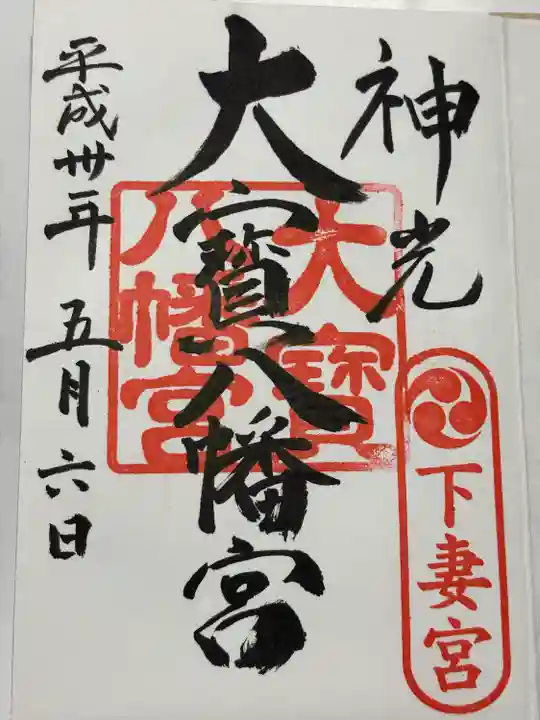 神光
下妻宮
大寳八幡宮
大寳
八幡宮
平成卅年五月六日